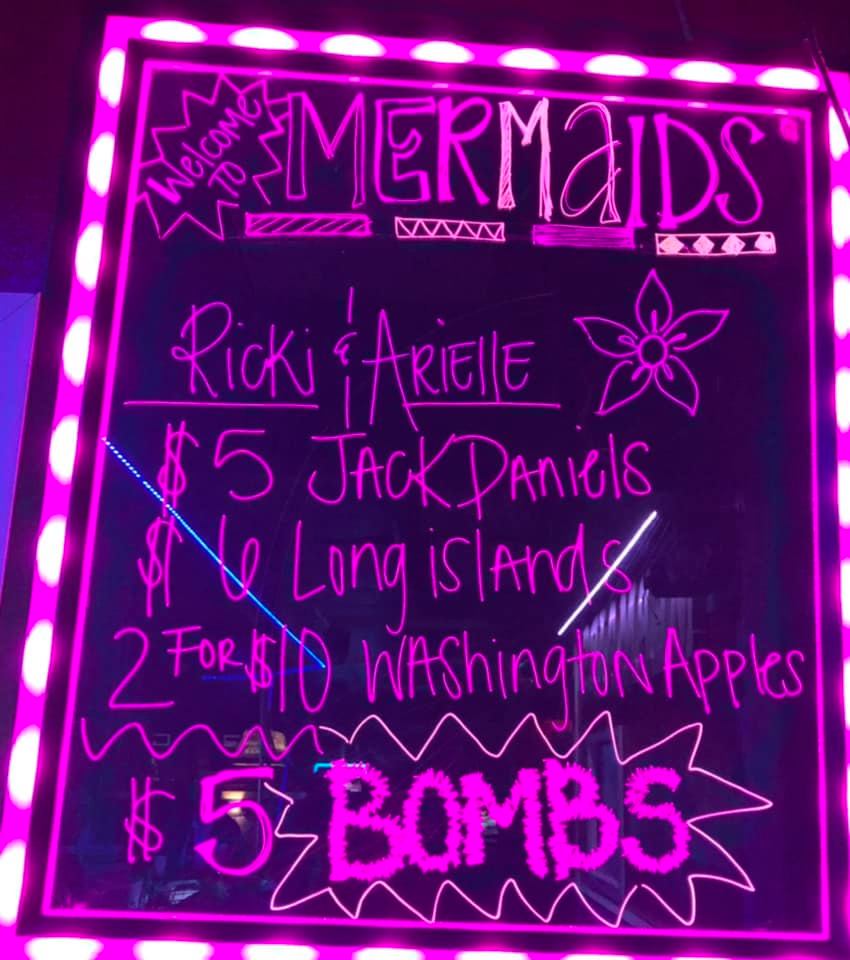 Welcome TO MERMaIDS
Ricki & ARIEllE
$5 JACK DANiels
$6 Long islANds
2 FOR $10 WAShingtoN Apples
$5 BOMBS